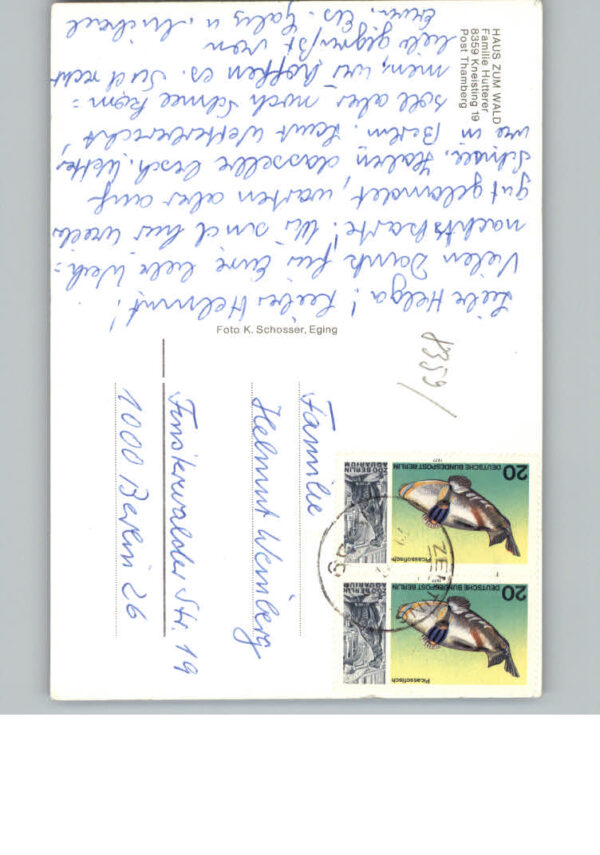 HAUS ZUM WALD
Familie Hutterer
8359 Kneisting 19
Post Thamberg
Liebe Helga! Lieber Helmut!
Vielen Dank für Eure liebe Weih=
nachtskarte! Wir sind hier wieder
gut gelandet, warten aber auf
Schnee. Haben dasselbe Wetter
wie in Berlin. Laut Wetterbericht,
soll aber noch Schnee kom=
men, wir hoffen es. Seid recht
lieb gegrüßt von
Erwin, Els. Gaby u. Michael
Foto K. Schosser, Eging
8359/
Familie
Helmut Weinberg
Finsterwalder Str. 19
1000 Berlin 26
20
DEUTSCHE BUNDESPOST BERLIN
1977
Picassofisch
ZOO BERLIN
AQUARIUM
20
DEUTSCHE BUNDESPOST BERLIN
1977
Picassofisch
ZOO BERLIN
AQUARIUM